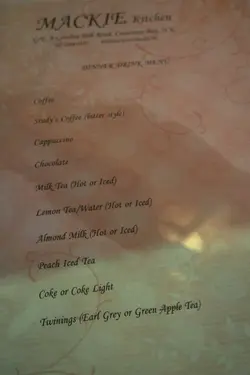 MACKIE Kitchen
DINNER DRINK MENU
Coffee
Coffee (Water style)
Cappuccino
Chocolate
Milk Tea (Hot or Iced)
Lemon Tea/Water (Hot or Iced)
Almond Milk (Hot or Iced)
Peach Iced Tea
Coke or Coke Light
Twinings (Earl Grey or Green Apple Tea)